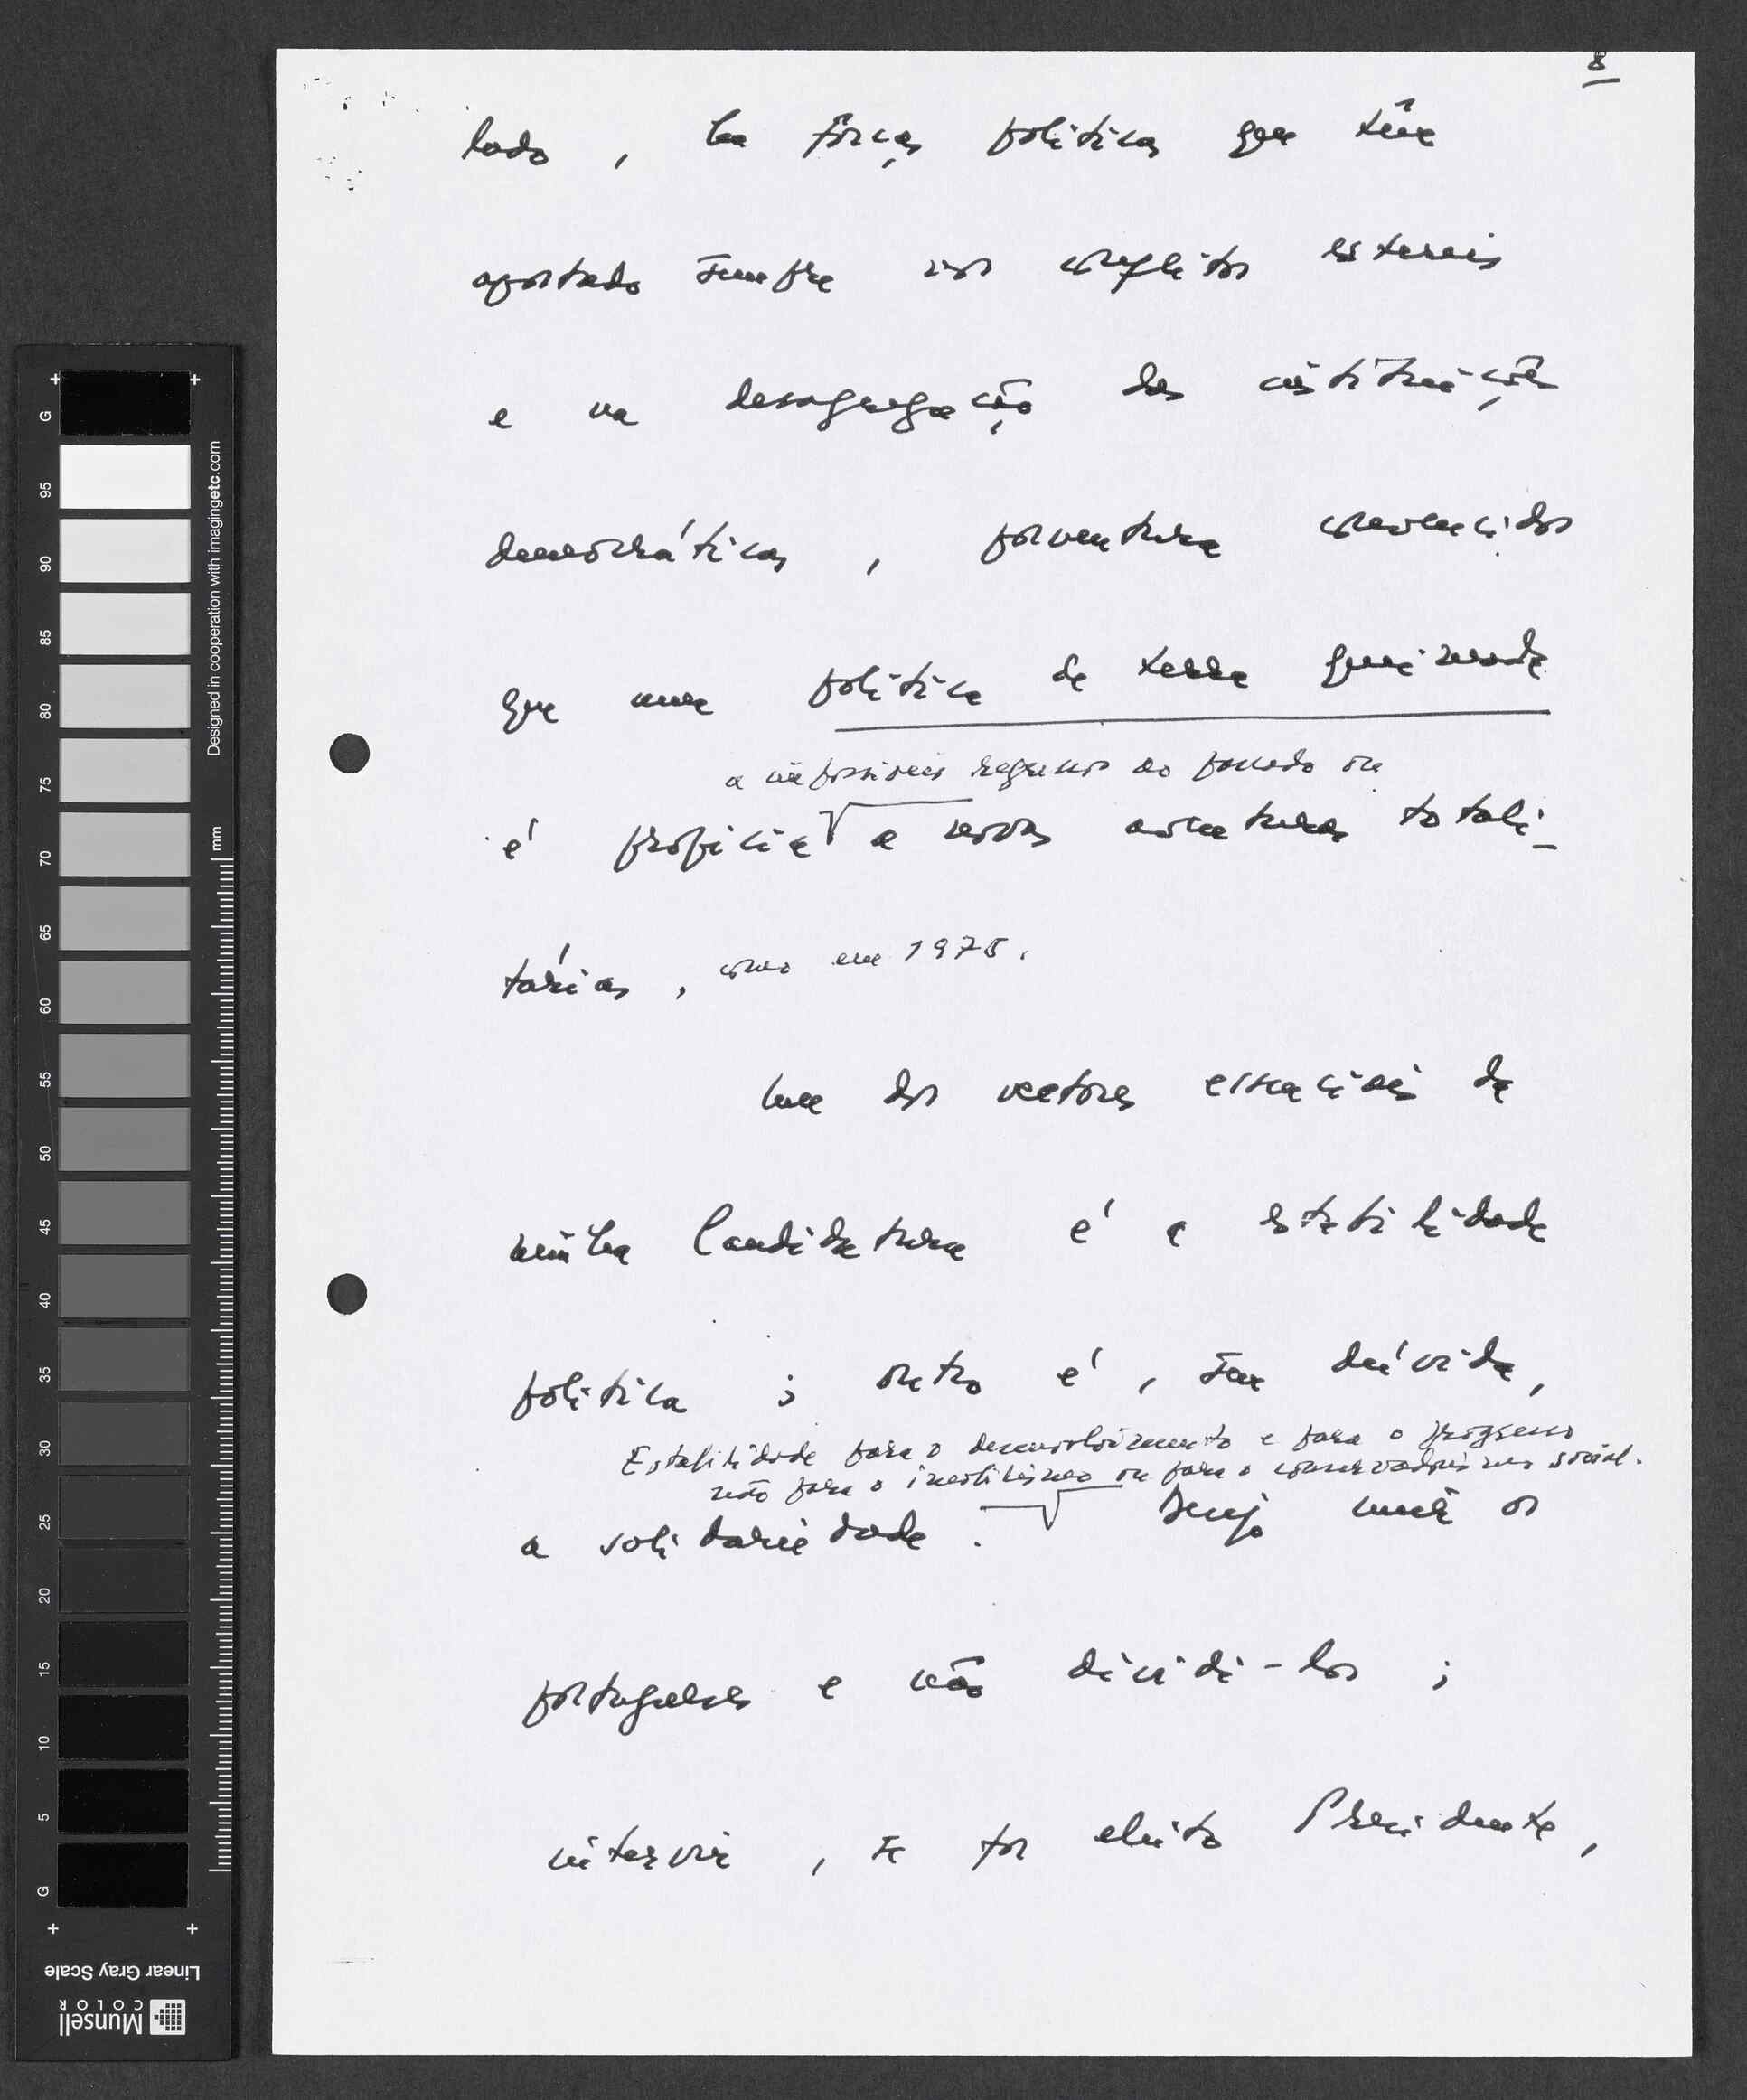 8
lado, há forças políticas que têm
apostado sempre nos conflitos estéreis
e na desagregação das instituições
democráticas, porventura convencidos
que uma política de terra queimada
a impossíveis regressos ao passado ou
é propícia a novas aventuras totali-
tárias, como em 1975.
Um dos vectores essenciais da
minha Candidatura é a estabilidade
política; outro é, sem dúvida,
Estabilidade para o desenvolvimento e para o progresso
não para o imobilismo ou para o conservadorismo social.
a solidariedade. Desejo unir os
portugueses e não dividi-los;
intervir, se for eleito Presidente,
Designed in cooperation with imagingetc.com
mm
G
95
90
85
80
75
70
65
60
55
50
45
40
35
30
25
20
15
10
5
G
Linear Gray Scale
Munsell
COLOR